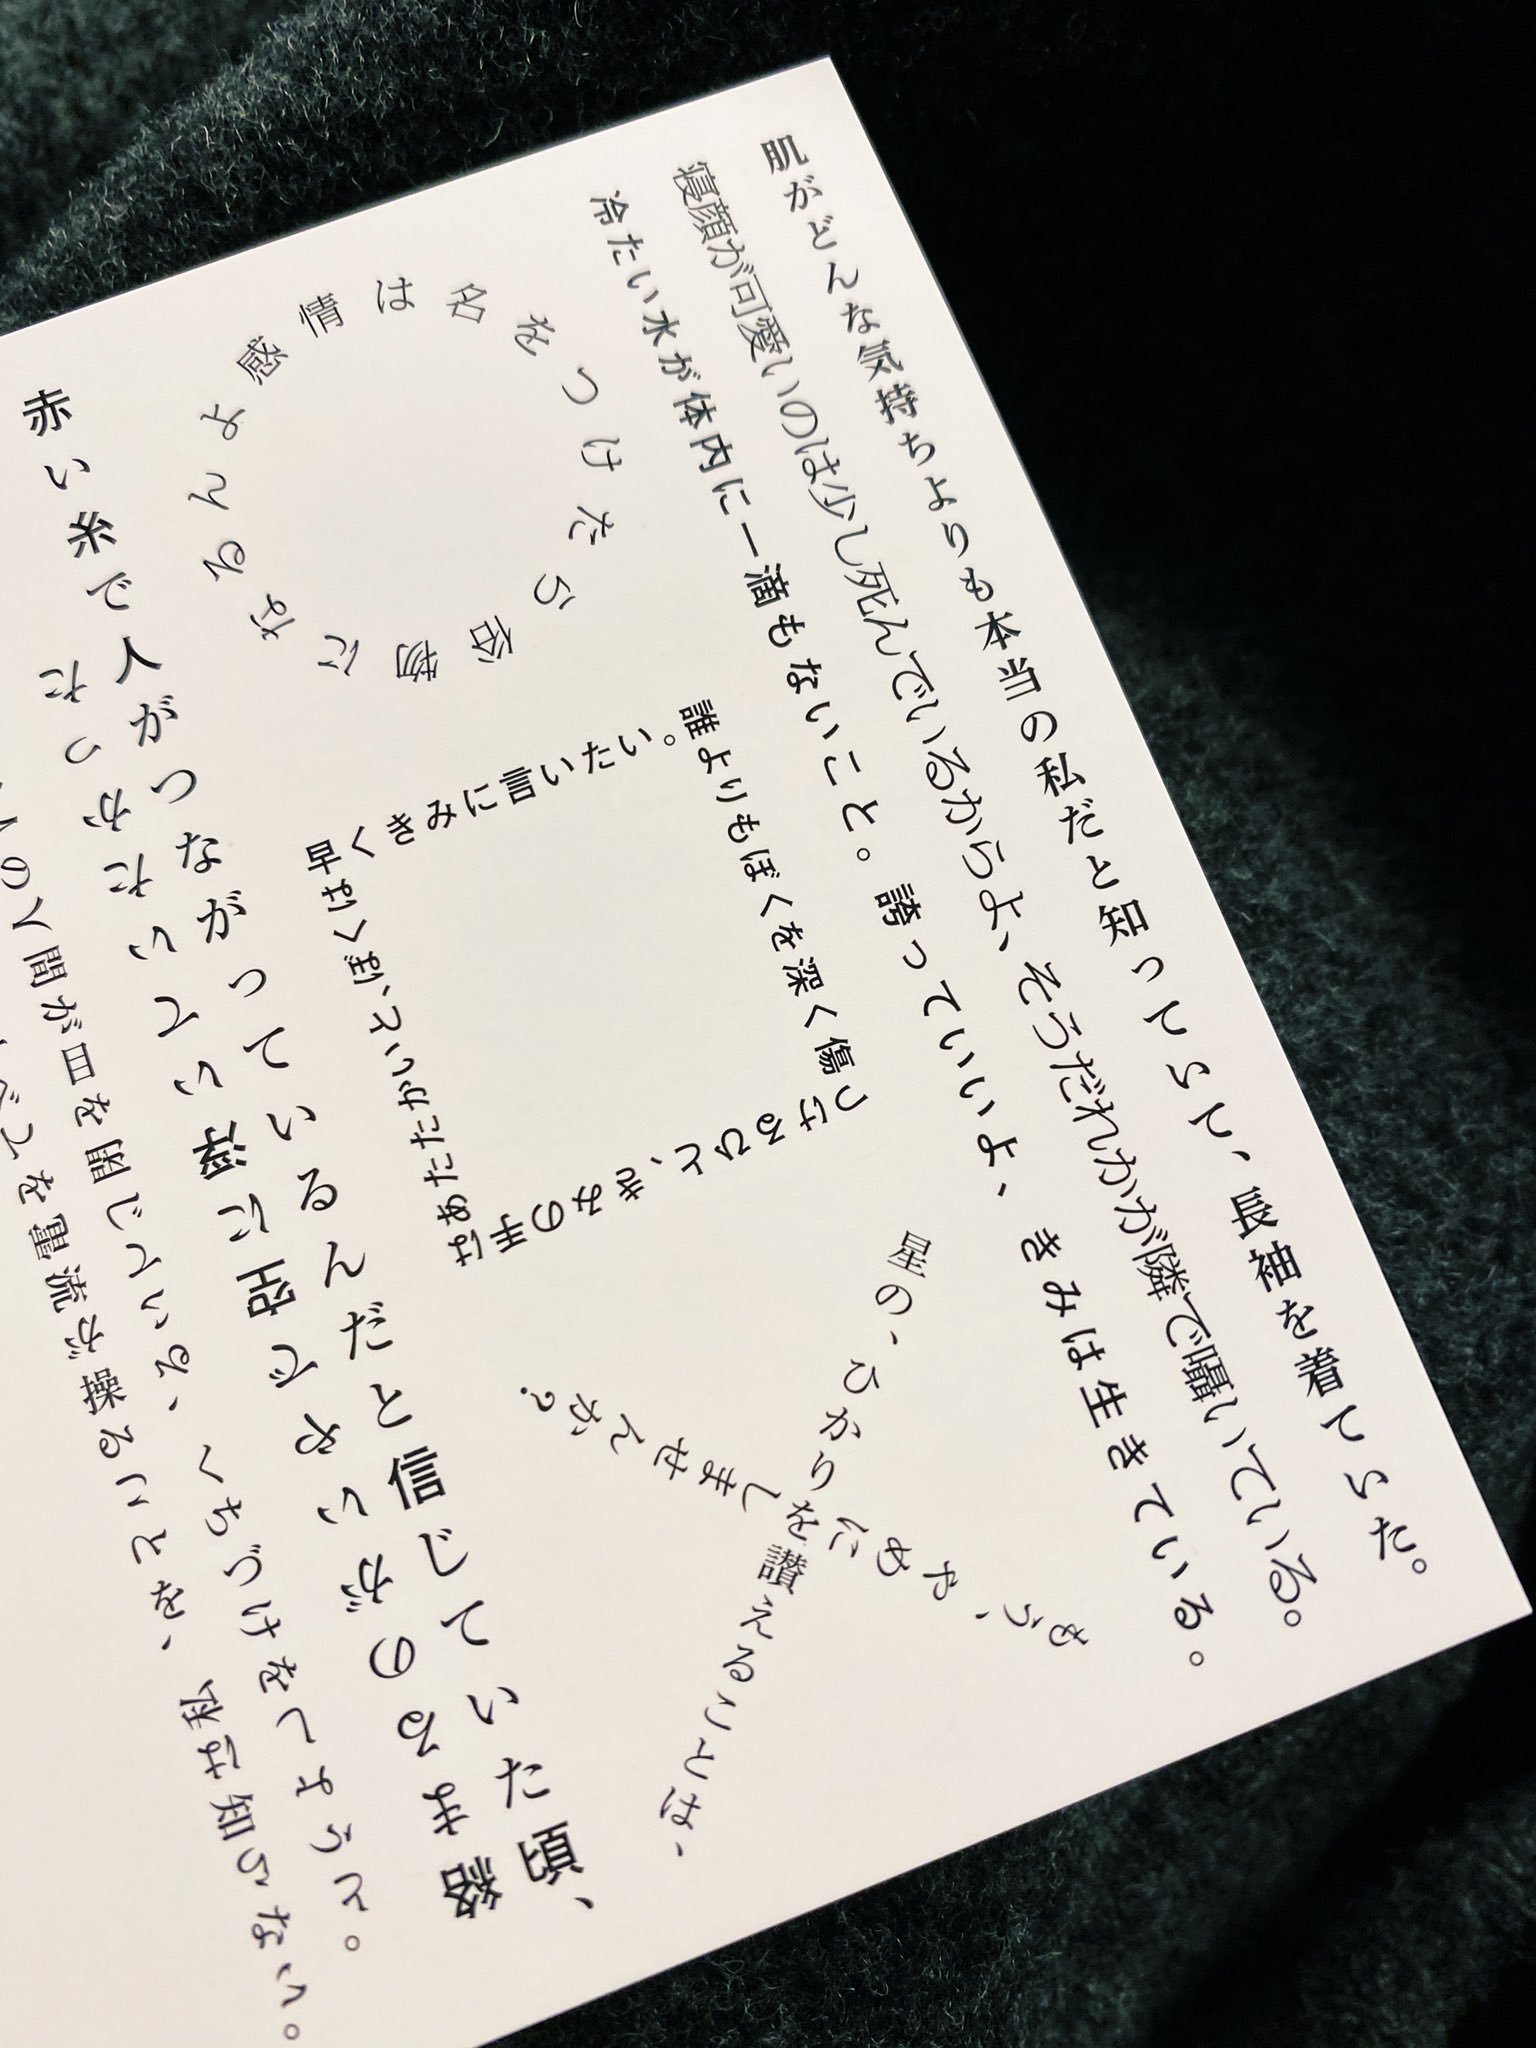 肌がどんな気持ちよりも本当の私だと知っていて、長袖を着ていた。
寝顔が可愛いのは少し死んでいるからよ、そうだれかが隣で囁いている。
冷たい水が体内に一滴もないこと。誇っていいよ、きみは生きている。
感情は名をつけたら俗物になるんよ
誰よりもぼくを深く傷つけるひと、きみの手はあたたかいと、ぼくは早くきみに言いたい。
星の、ひかりを讃えることは、
もう、やめにしませんか?
赤い糸で人がつながっているんだと信じていた頃、
絡まるのがいやで空に浮いていたかった
人の人間が目を閉じている、くちづけをしようと。
べてを電流が操ることを、私は知らない。